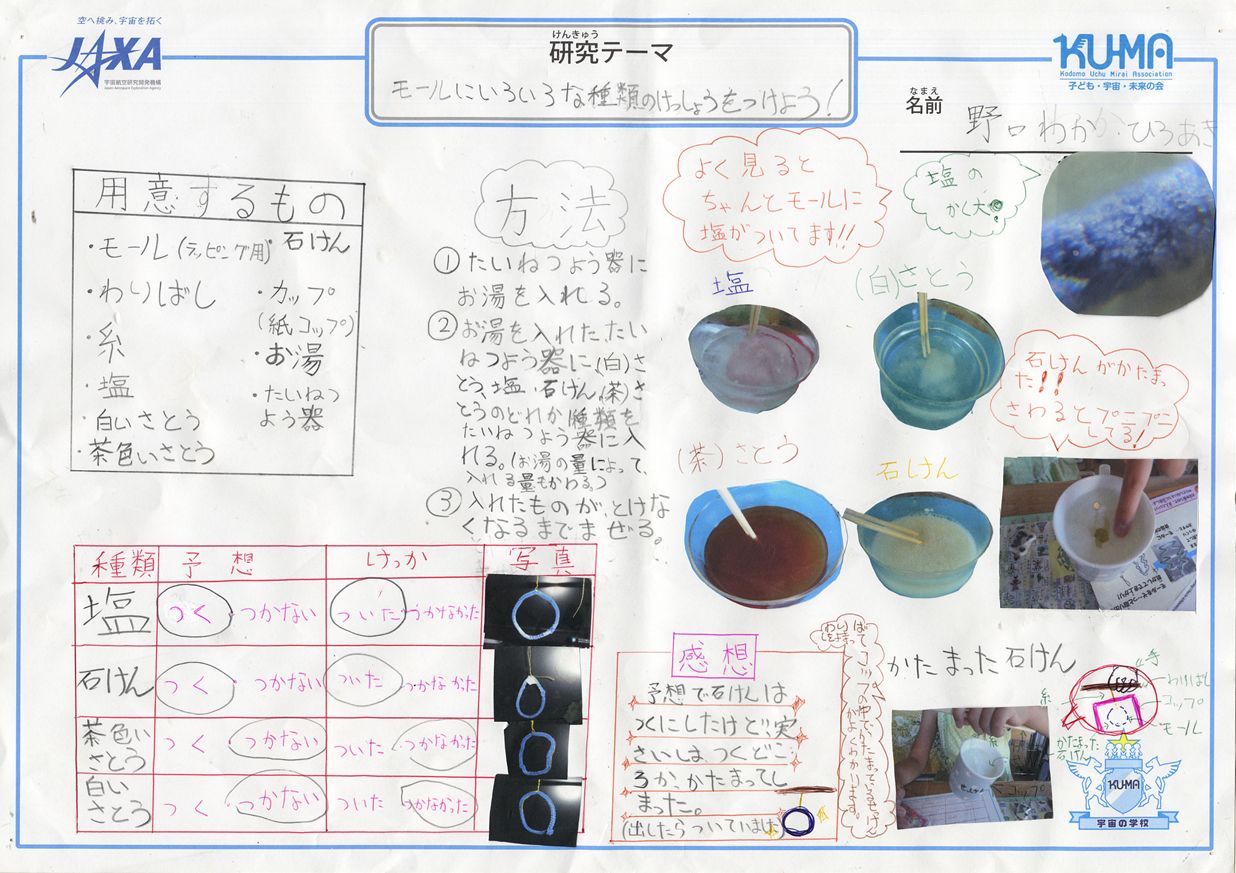 空へ挑み、宇宙を拓く
JAXA
宇宙航空研究開発機構
Japan Aerospace Exploration Agency
けんきゅう
研究テーマ
モールにいろいろな種類のけっしょうをつけよう!
KU-MA
Kodomo Uchu Mirai Association
子ども・宇宙・未来の会
なまえ
名前
野口 わかか・ひろあき
用意するもの
・モール(ラッピング用)
・わりばし
・糸
・塩
・白いさとう
・茶色いさとう
・石けん
・カップ
(紙コップ)
・お湯
・たいねつ
よう器
方法
①たいねつよう器に
お湯を入れる。
②お湯を入れた、たい
ねつよう器に、(白)さ
とう、塩・石けん、(茶)さ
とうのどれか種類を
たいねつよう器に入
れる。(お湯の量によって、
入れる量もかわる。)
③入れたものが、とけな
くなるまでまぜる。
よく見ると
ちゃんとモールに
塩がついてます!!
塩の
かく大
塩
(白)さとう
(茶)さとう
石けん
石けんがかたまっ
た!!
さわるとプニプニ
してる!
種類 予想 けっか 写真
塩 つく・つかない ついた・つかなかった
石けん つく・つかない ついた・つかなかった
茶色い
さとう つく・つかない ついた・つかなかった
白い
さとう つく・つかない ついた・つかなかった
感想
予想で石けんは
つくにしたけど、実
さいは、つくどこ
ろか、かたまってし
まった。
(出したらついていました)
わりばし
を持って
コップの中でかたまっている石けん
がよくわかります。
かたまった石けん
手
わりばし
コップ
モール
糸
かたまった
石けん
糸
コップ
KU-MA
宇宙の学校